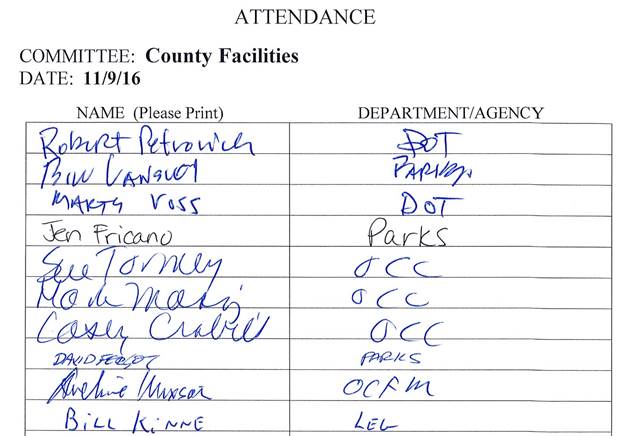 ATTENDANCE
COMMITTEE: County Facilities
DATE: 11/9/16
NAME (Please Print) DEPARTMENT/AGENCY
Robert Petrovich DOT
Bill Lansley Parks
MARTY VOSS DOT
Jen Fricano Parks
Sue Tormey OCC
Mark OCC
Casey Crabill OCC
DAVID PARKS
OCFM
BILL KINNE LEG